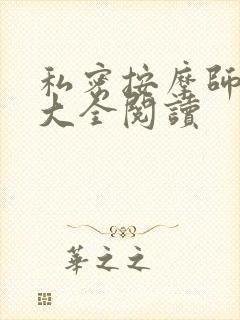 私密按摩師
大全閱讀
華之之